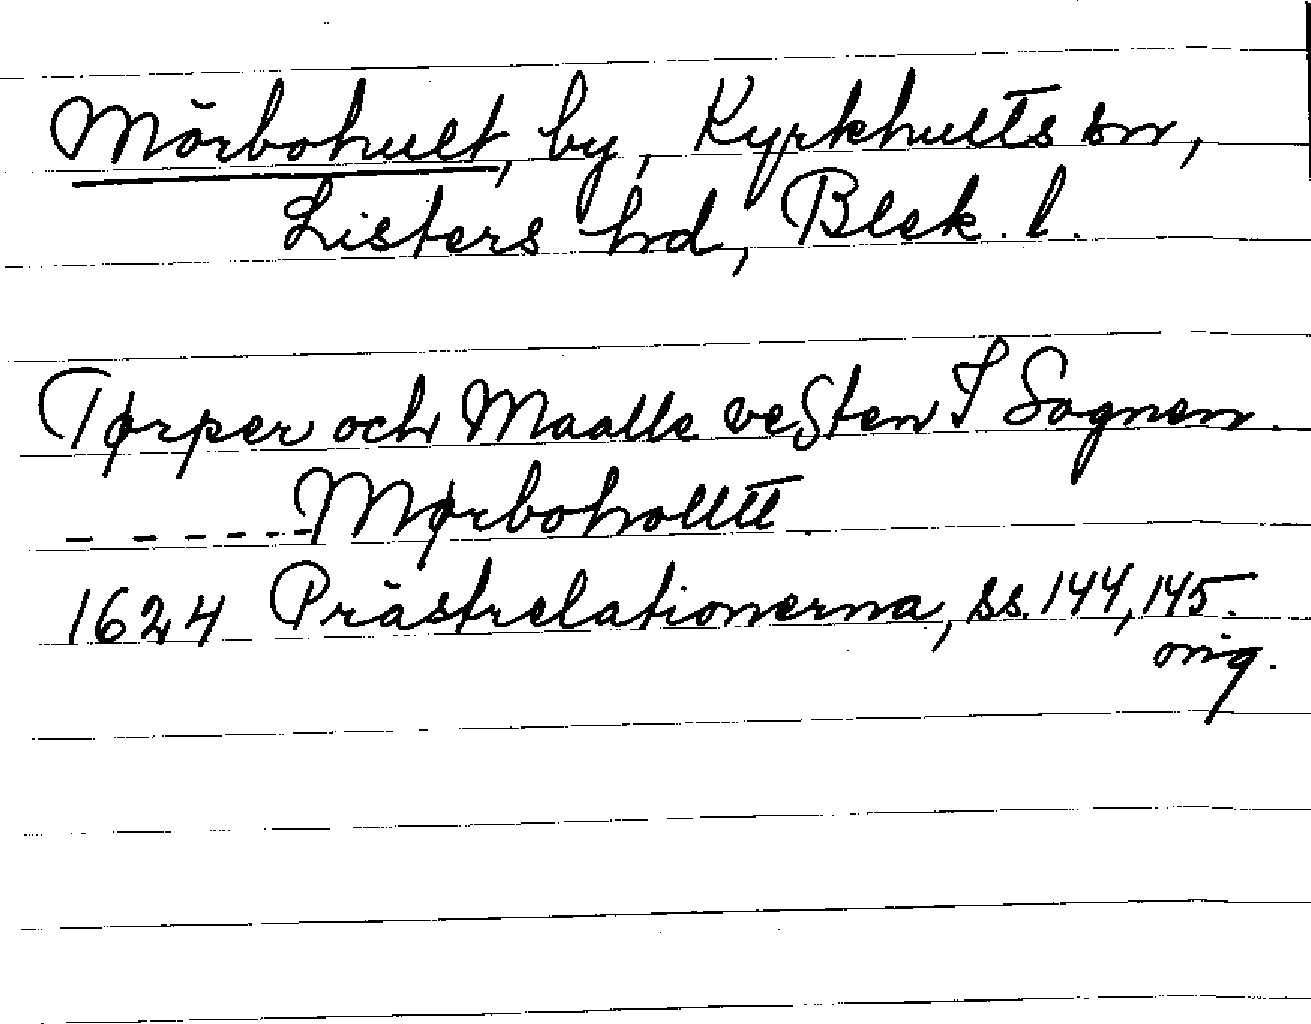 Mörbohult, by, Kyrkhults sn,
Listers hd, Blek. l.
Tørper och Maalle vesten I Sognen.
- - - - - - Mørboholltt
1624 Prästrelationerna, ss. 144, 145.
orig.